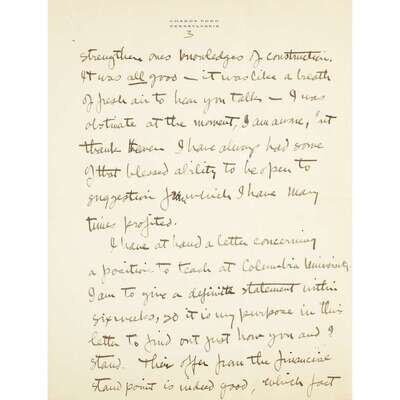 CHADDS FORD
PENNSYLVANIA
3
strengthen ones knowledges of construction.
It was all good — it was like a breath
of fresh air to hear you talk — I was
obstinate at the moment, I am aware, but
thank heaven I have always had some
of that blessed ability to be open to
suggestion from which I have many
times profited.
I have at hand a letter concerning
a position to teach at Columbia University.
I am to give a definite statement within
six weeks, so it is my purpose in this
letter to find out just how you and I
stand. Their offer from the financial
stand point is indeed good, which fact